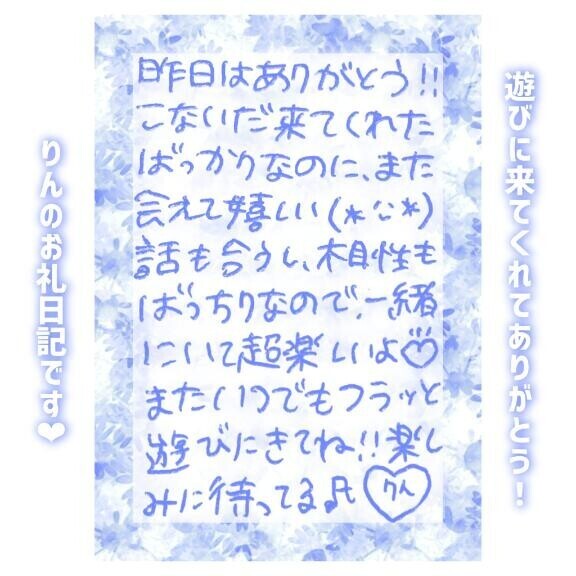 遊びに来てくれてありがとう！
昨日はありがとう!!
こないだ来てくれた
ばっかりなのに、また
会えて嬉しい(*¨*)
話も合うし、相性も
ばっちりなので、一緒
にいて超楽しいよ♡
またいつでもフラッと
遊びにきてね!!楽し
みに待ってる♪
りん
りんのお礼日記です❤